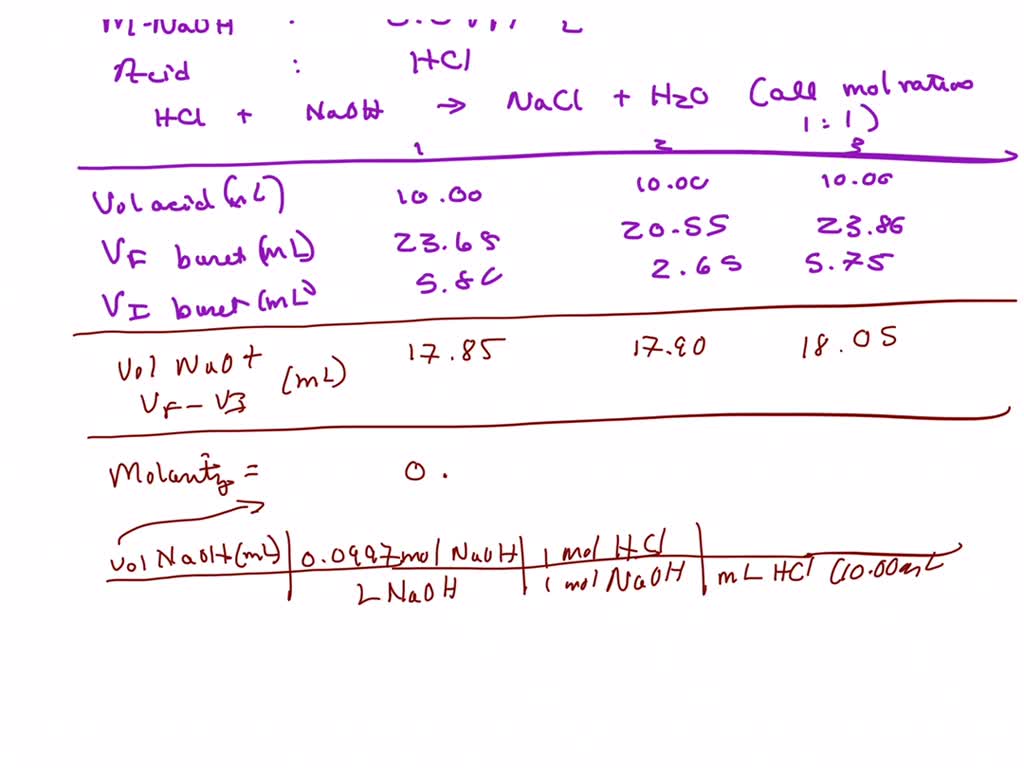 M-NaOH :
Acid : HCl
HCl + NaOH → NaCl + H2O (all mol ratios 1:1)
1 2 3
Vol acid (mL) 10.00 10.00 10.00
VF buret (mL) 23.65 20.55 23.80
VI buret (mL) 5.80 2.65 5.75
Vol NaOH (mL) 17.85 17.90 18.05
VF - VI
Molarity = 0.
Vol NaOH (mL) | 0.0997 mol NaOH | 1 mol HCl |
L NaOH | 1 mol NaOH | mL HCl (10.00 mL